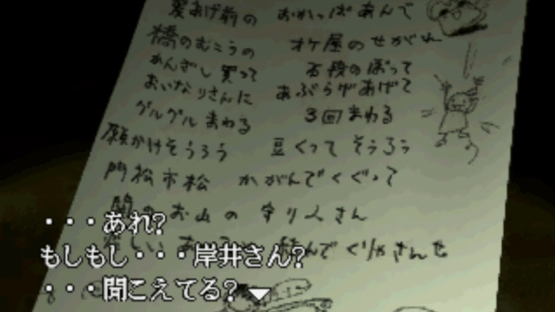 髪あげ前の おかっぱあんで
橋のむこうの オケ屋のせがれ
かんざし買って 石段のぼって
おいなりさんに あぶらげあげて
グルグルまわる 3回まわる
願かけそうろう 豆くってそうろう
門松市松 かがんでくぐって
お山の 守り人さん
んで ぐりかさんを
・・・あれ?
もしもし・・・岸井さん?
・・・聞こえてる?